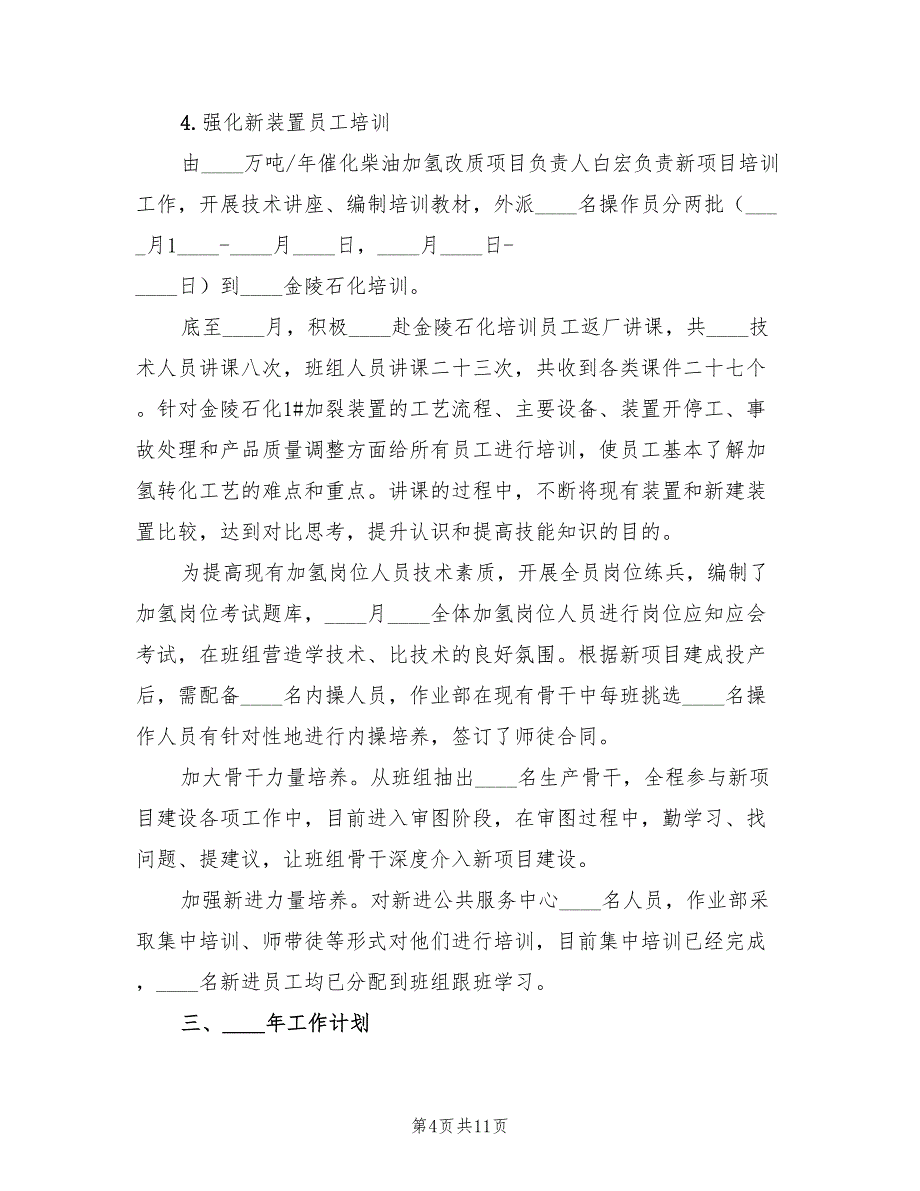 4.强化新装置员工培训
由____万吨/年催化柴油加氢改质项目负责人白宏负责新项目培训
工作，开展技术讲座、编制培训教材，外派____名操作员分两批（___
_月1____-____月____日，____月____日-
____日）到____金陵石化培训。
底至____月，积极____赴金陵石化培训员工返厂讲课，共____技
术人员讲课八次，班组人员讲课二十三次，共收到各类课件二十七个
。针对金陵石化1#加裂装置的工艺流程、主要设备、装置开停工、事
故处理和产品质量调整方面给所有员工进行培训，使员工基本了解加
氢转化工艺的难点和重点。讲课的过程中，不断将现有装置和新建装
置比较，达到对比思考，提升认识和提高技能知识的目的。
为提高现有加氢岗位人员技术素质，开展全员岗位练兵，编制了
加氢岗位考试题库，____月____全体加氢岗位人员进行岗位应知应会
考试，在班组营造学技术、比技术的良好氛围。根据新项目建成投产
后，需配备____名内操人员，作业部在现有骨干中每班挑选____名操
作人员有针对性地进行内操培养，签订了师徒合同。
加大骨干力量培养。从班组抽出____名生产骨干，全程参与新项
目建设各项工作中，目前进入审图阶段，在审图过程中，勤学习、找
问题、提建议，让班组骨干深度介入新项目建设。
加强新进力量培养。对新进公共服务中心____名人员，作业部采
取集中培训、师带徒等形式对他们进行培训，目前集中培训已经完成
，____名新进员工均已分配到班组跟班学习。
三、____年工作计划
第4页共11页